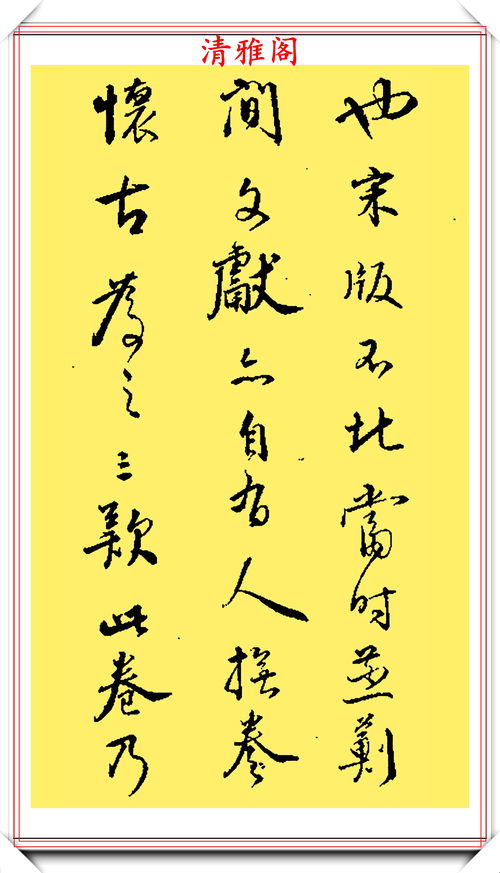 清雅阁
也宋版不比當时燕薊
間文獻亦自有人撫卷
懷古為之三歎此卷乃